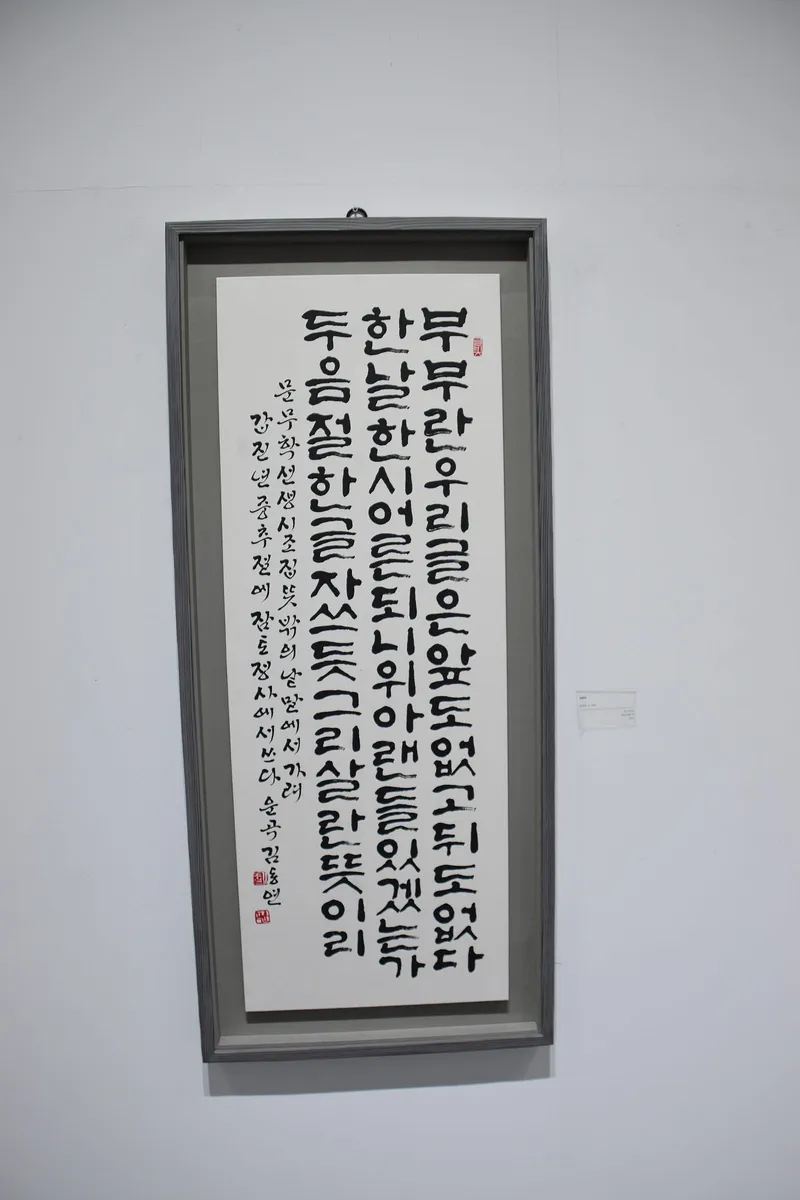 부부란우리글은앞도없고뒤도없다
한날한시어른되니위아랜들있겠는가
두음절한글자쓰듯그리살란뜻이리
문무학선생시조집뜻밖의낱말에서가려
갑진년중추절에잠토정사에서쓰다운곡김동연